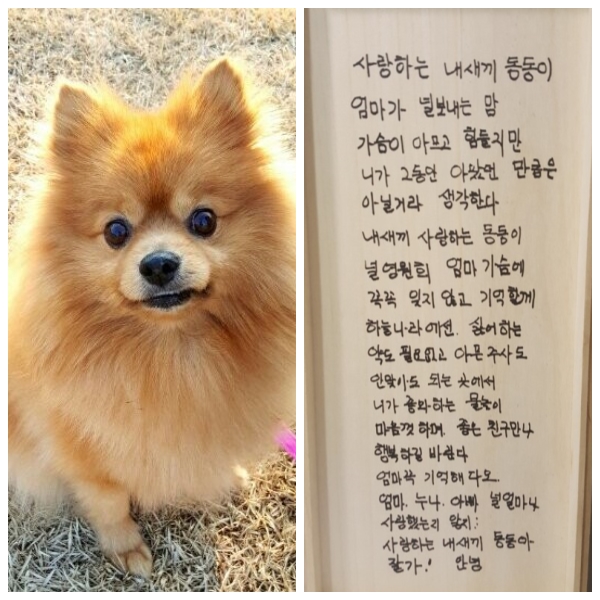 사랑하는 내새끼 동동이
엄마가 널보내는 맘
가슴이 아프고 힘들지만
니가 그동안 아팠던 만큼은
아닐거라 생각한다
내새끼 사랑하는 동동이
널영원히 엄마 가슴에
꼭꼭 잊지 않고 기억할게
하늘나라에선. 싫어하는
약도 필요없고 아픈주사도
안맞아도 되는 곳에서
니가 좋아하는 물놀이
마음껏 하며. 좋은 친구만나
행복하길 바란다
엄마꼭 기억해 다오.
엄마. 누나. 아빠 널얼마나
사랑했는지 알지!
사랑하는 내새끼 동동아
잘가! 안녕